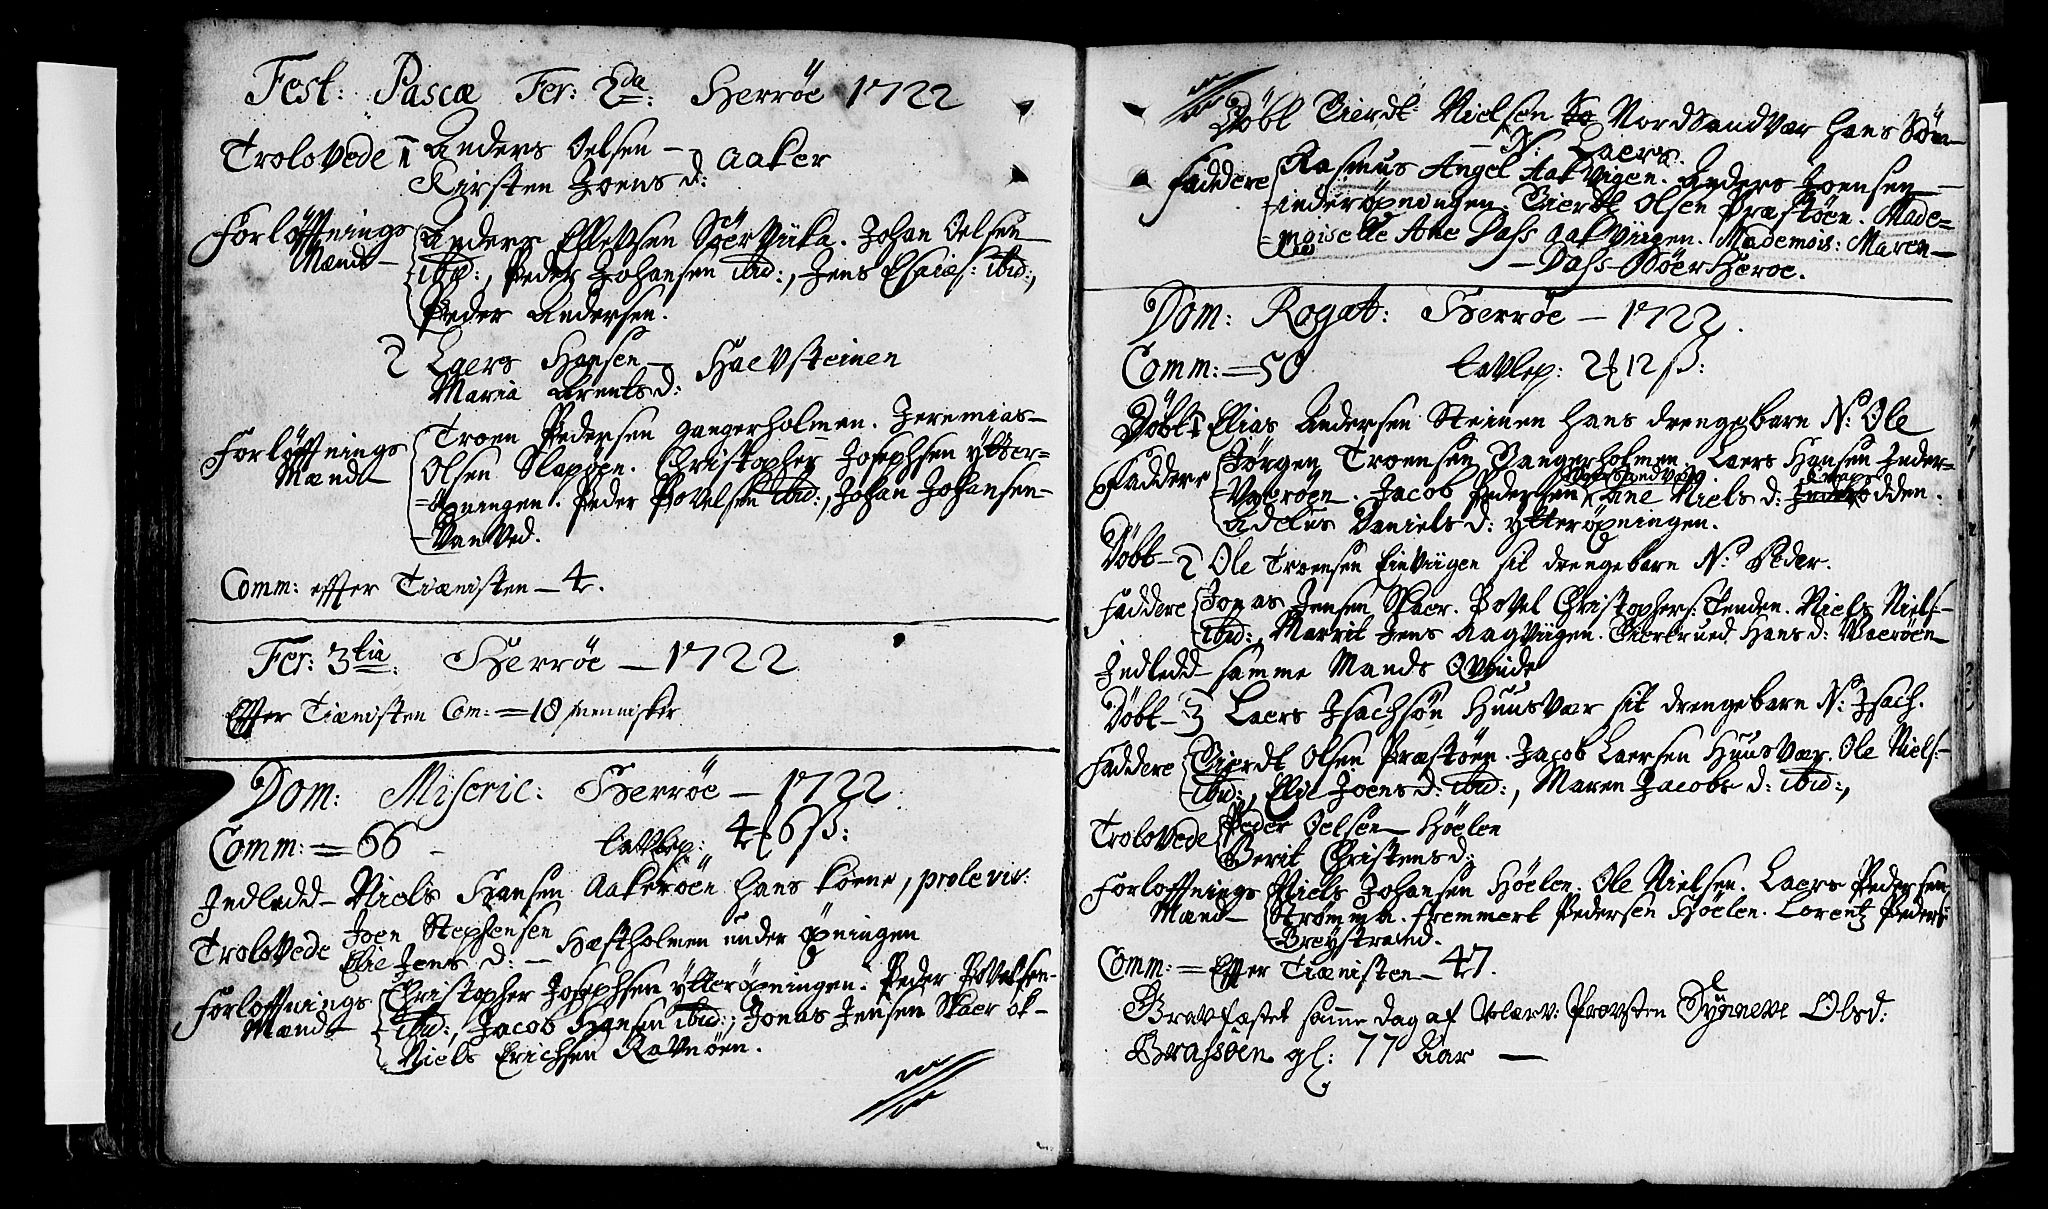 Fest: Pascæ Fer: 2da: Herröe 1722
Trolovede 1 Anders Oelsen – Aaker
Kirsten Joens d:
Forløffnings Mænd Anders Ellevsen SörViika. Johan Oelsen
ibid:, Peder Johansen ibid:, Jens Esaies: ibid:,
Peder Andersen.
2 Laers Hansen – Halvsteinen
Maria Arents d:
Forløffnings Mænd Troen Pedersen gangerholmen. Jeremias
Olsen Slapöen. Christopher Josephsen ytter=
=öpningen. Peder Povelsen ibid:, Johan Johansen
VanVed.
Comm: effter Tiænisten – 4.
Fer: 3tia: Herröe – 1722
Effter Tiænisten Com: = 18 mennisker
Dom: Miseric: Herröe – 1722
Comm: = 66 – tavlep: 4 6 ß:
Indledd – Niels Hansen Aakeröen hans kone, prole viv:
Trolovede Joen Stephensen
Elie Jens d: – Hæstholmen under öpningen
Forloffnings Mænd Christopher Josephsen ytteröpningen. Peder Povelsen
ibid:, Jacob Hansen ibid:, Jonas Jensen Skaer ok
Niels Erichsen Ravnöen.
Döbt Gierdt Nielsen NordsandVær hans Sön
N: Laers.
Faddere Rasmus Angel AakVigen. Anders Joensen
inderöpningen. Gierdt Olsen Præstöen. Made=
=moiselle Ane Dass AakViigen. Mademois: Maren
– Dass Söer Heröe.
Dom: Rogat: Herröe – 1722.
Comm: = 50 tavlep: 2 12 ß:
Döbt 1 Elias Andersen Steinen hans drengebarn N: Ole
Faddere Jörgen Troensen Gangerholmen. Laers Hansen Inder=
=Væröen. Jacob Pedersen, Ane Niels d: odden.
Adelus Daniels d: ytteröpningen.
Döbt – 2 Ole Troensen EinViigen sit drengebarn N: Peder.
Faddere Jonas Jensen Skaer. Povel Christophers: Tenden. Niels Niels:
ibid:, Marrit Jens AagViigen. Giertrued Hans d: Væröen
Indledd samme Mands Qvinde
Döbt – 3 Laers Isachsön HuusVær sit drengebarn N: Isach.
Faddere Gierdt Olsen Præstöen. Jacob Laersen HuusVær. Ole Niels:
ibid:, Elie Joens d: ibid:, Maren Jacobs d: ibid:,
Trolovede Peder Oelsen – Höelen
Berit Christens d:
Forloffnings Mænd Niels Johansen Höelen. Ole Nielsen. Laers Pedersen
Strömmen. Fremmert Pedersen Höelen. Lorentz Peders:
Breystrand.
Comm: = Effter Tiænisten – 47.
Gravfæstet samme dag af Provsten Synneve Olsd:
Brasöen gl: 77 Aar –